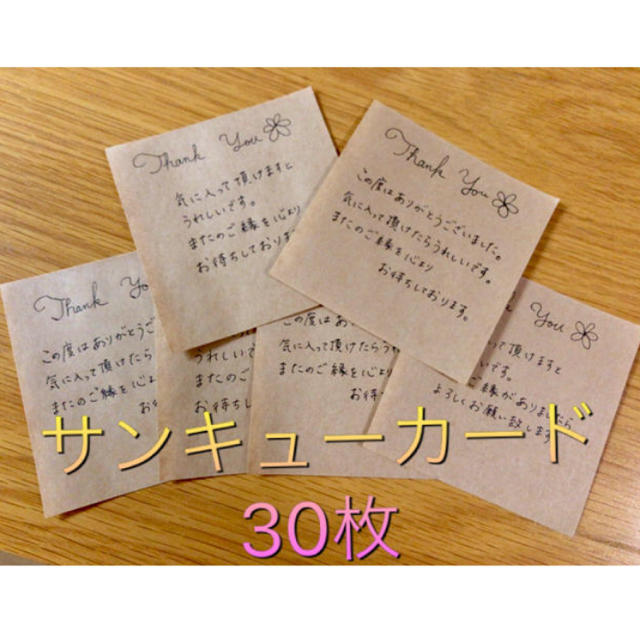 Thank You
気に入って頂けますと
うれしいです。
またのご縁を心より
お待ちしておりま
Thank You
この度はありがとうございました。
気に入って頂けたらうれしいです。
またのご縁を心より
お待ちしております。
Thank Yo
この度はありがとうご
気に入って頂けたら
またのご縁を心より
お待
うれしいで
またのご
お待ちし
この度はあ
気に入って頂けたらう
またのご縁を心より
お待
You
って頂けますと
です。
ご縁がありましたら
よろしくお願い致します
サンキューカード
30枚